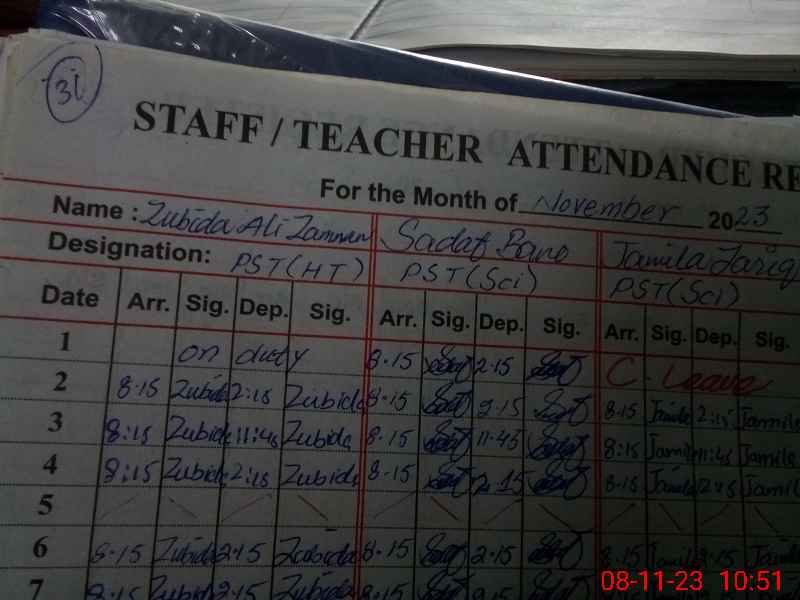 31
STAFF / TEACHER ATTENDANCE RE
For the Month of November 2023
Name : Zubida Ali Zamman Sadaf Bano Jamila Tariq
Designation: PST(HT) PST(Sci) PST(Sci)
Date Arr. Sig. Dep. Sig. Arr. Sig. Dep. Sig. Arr. Sig. Dep. Sig.
1 on duty 8.15 2.15 C. Leave
2 8.15 Zubida 2:15 Zubida 8.15 2.15 8.15 Jamila 2:15 Jamila
3 8:15 Zubida 11:45 Zubida 8.15 11.45 8:15 Jamila 11:45 Jamila
4 8:15 Zubida 2:15 Zubida 8.15 2.15 8.15 Jamila 2:15 Jamil
5
6 8.15 Zubida 2.15 Zubida 8.15 2.15 8.15 Jamila 2.15 Jamila
7 8.15 Zubida 2.15 Zubida 8.15 2.15
08-11-23 10:51